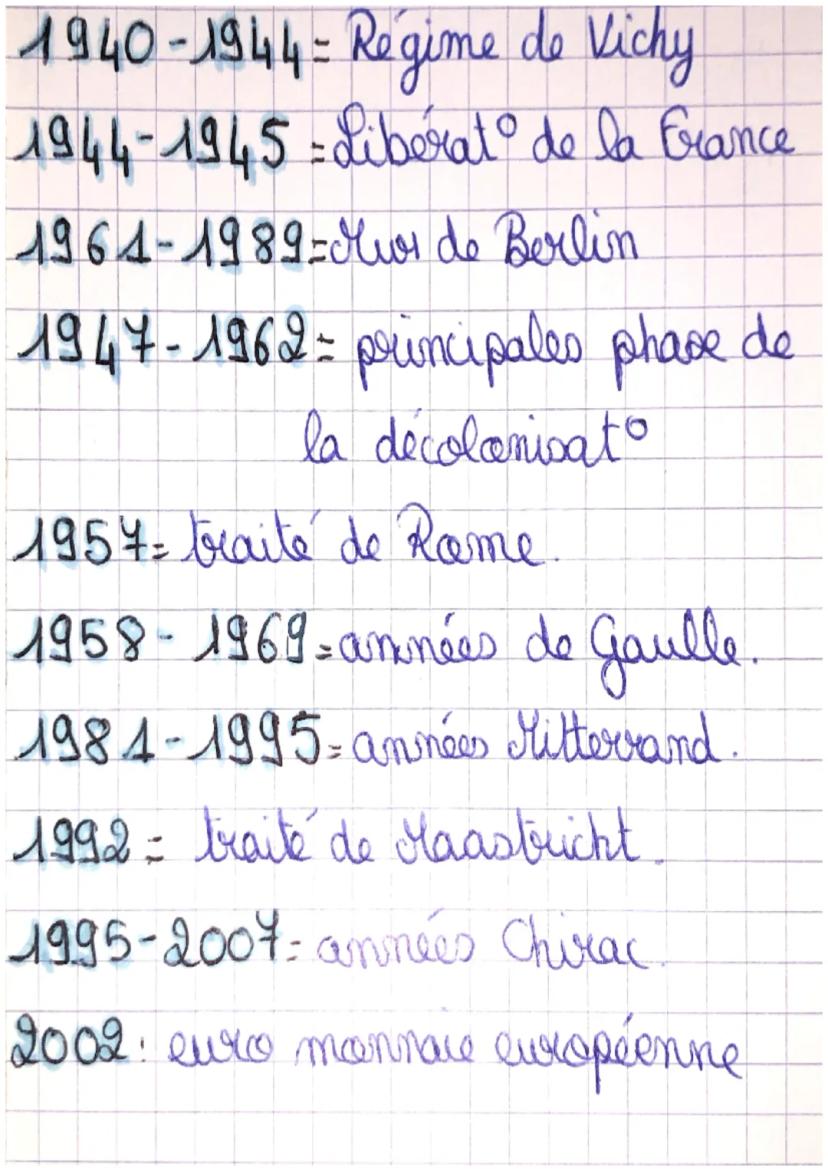 1940-1944= Régime de Vichy
1944-1945 =Libérat° de la France
1961-1989=Mur de Berlin
1947-1962= principales phase de
la décolonisat°
1957= traité de Rome.
1958- 1969=années de Gaulle.
1981-1995= années Mitterrand.
1992= traité de Maastricht.
1995-2007= années Chirac.
2002: euro monnaie européenne